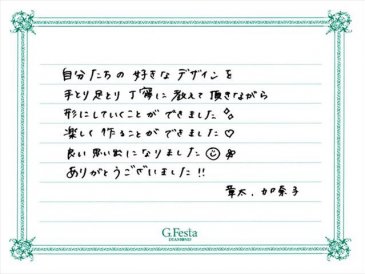 自分たちの好きなデザインを
手とり足とり丁寧に教えて頂きながら
形にしていくことができました
楽しく作ることができました♡
良い思い出になりました☺
ありがとうございました!!
加奈子
G.Festa
DIAMOND